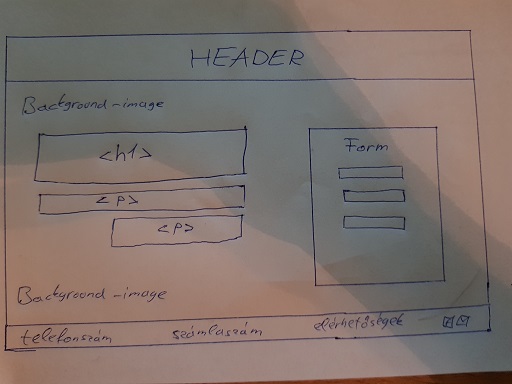 HEADER
Background-image
<h1>
<p>
<p>
Form
Background-image
telefonszám számlaszám elérhetőségek